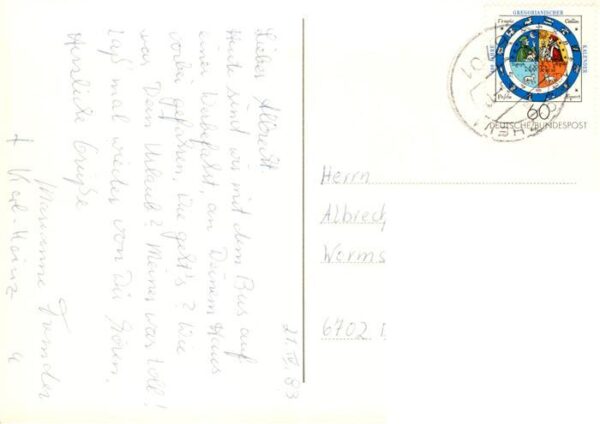 21.IV.83
Lieber Albrecht
Heute sind wir mit dem Bus auf
einer Werbefahrt, an Deinem Haus
vorbei gefahren, wie geht's? Wie
war Dein Urlaub? Meiner war toll!
Laß' mal wieder von Dir hören.
Herzliche Grüße
Marianne
+ Karl-Heinz
GREGORIANISCHER
KALENDER
60
DEUTSCHE BUNDESPOST
Herrn
Albrech
Worms
6702